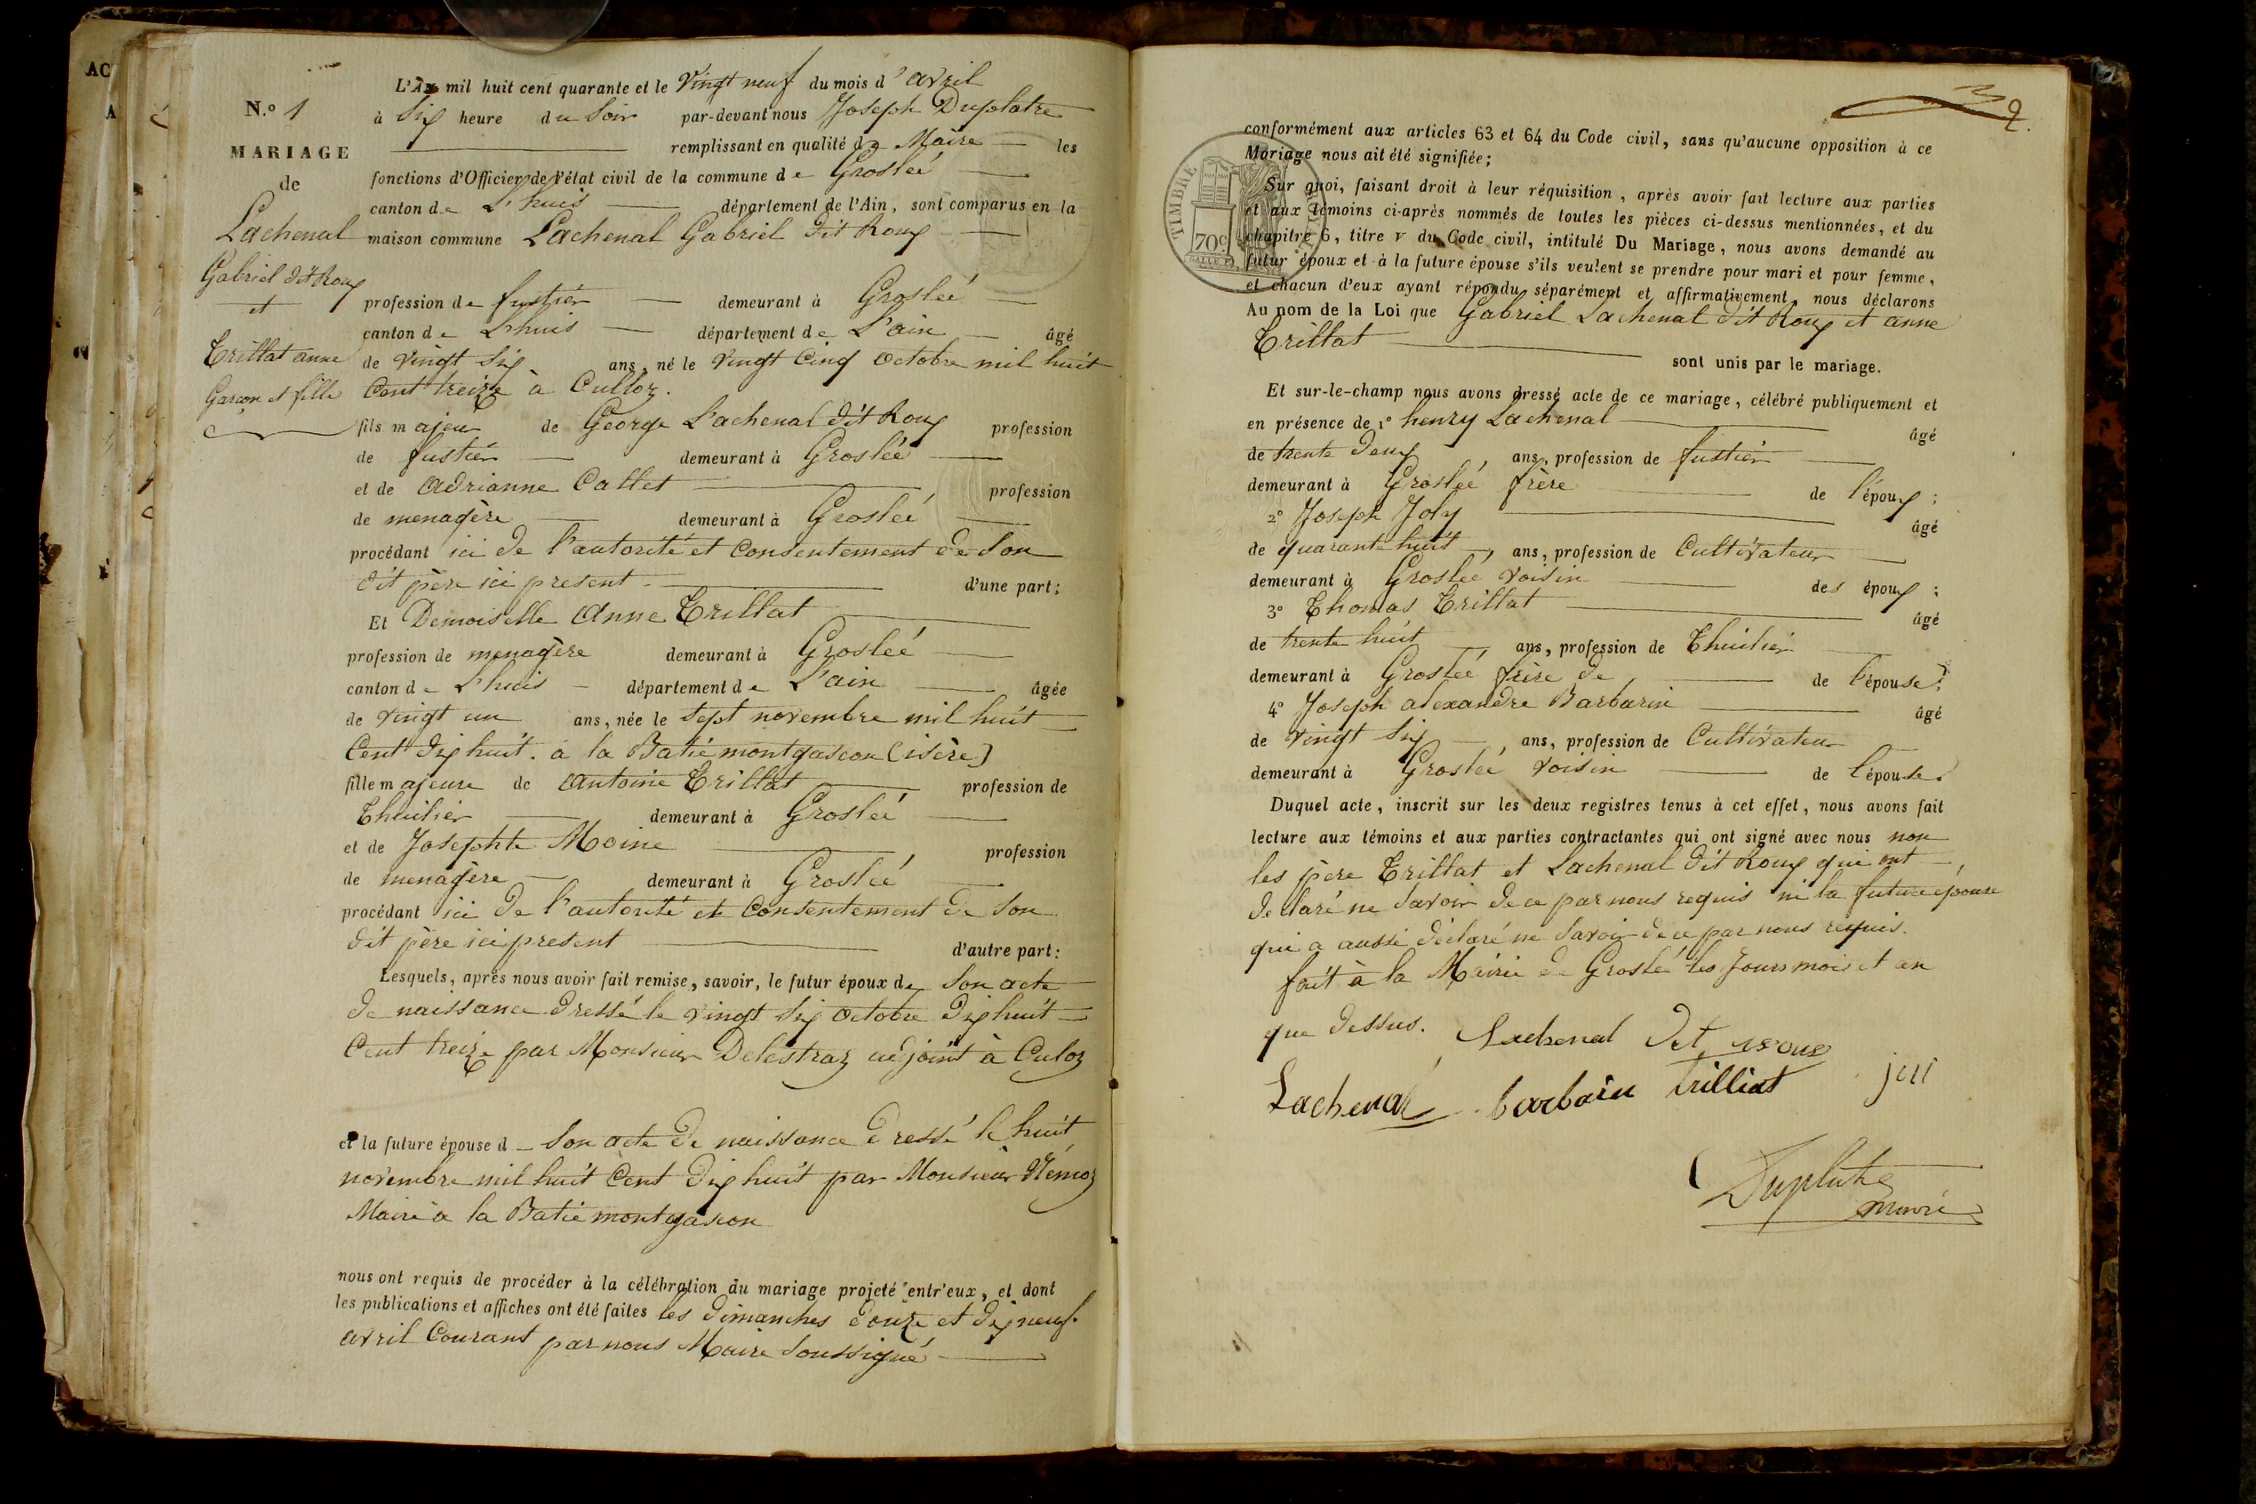 AC
A
N.º 1
MARIAGE
de
Lachenal
Gabriel dit Roux
et
Trillat anne
Garçon et fille
L'An mil huit cent quarante et le vingt neuf du mois d'avril
à six heure du soir par-devant nous Joseph Duplatre
remplissant en qualité de Maire les
fonctions d'Officier de l'état civil de la commune de Groslée
canton de L'huis département de l'Ain, sont comparus en la
maison commune Lachenal Gabriel dit Roux
profession de fustier demeurant à Groslée
canton de L'huis département de L'ain âgé
de vingt six ans, né le vingt cinq octobre mil huit
Cent treize à Culloz.
fils majeur de George Lachenal dit Roux profession
de fustier demeurant à Groslée
et de Adrianne Callet profession
de menagère demeurant à Groslée
procédant ici de l'autorité et consentement de son
dit père ici present d'une part;
Et Demoiselle Anne Trillat
profession de menagère demeurant à Groslée
canton de L'huis département de L'ain âgée
de vingt un ans, née le sept novembre mil huit
Cent dix huit. à la Batie montgascon (isère)
fille majeure de Antoine Trillat profession de
Thuilier demeurant à Groslée
et de Josephte Moine profession
de menagère demeurant à Groslée
procédant ici de l'autorité et consentement de son
dit père ici present d'autre part:
Lesquels, après nous avoir fait remise, savoir, le futur époux de son acte
de naissance dressé le vingt six octobre dix huit
Cent treize par Monsieur Delestraz adjoint à Culoz
et la future épouse d son acte de naissance dressé le huit
novembre mil huit Cent dix huit par Monsieur Némoz
Maire à la Batie montgascon
nous ont requis de procéder à la célébration du mariage projeté entr'eux, et dont
les publications et affiches ont été faites les dimanches douze et dix neuf
avril Courant par nous Maire soussigné
2.
TIMBRE ROYAL
70c
conformément aux articles 63 et 64 du Code civil, sans qu'aucune opposition à ce
Mariage nous ait été signifiée;
Sur quoi, faisant droit à leur réquisition, après avoir fait lecture aux parties
et aux témoins ci-après nommés de toutes les pièces ci-dessus mentionnées, et du
chapitre 6, titre v du Code civil, intitulé Du Mariage, nous avons demandé au
futur époux et à la future épouse s'ils veulent se prendre pour mari et pour femme,
et chacun d'eux ayant répondu séparément et affirmativement, nous déclarons
Au nom de la Loi que Gabriel Lachenal dit Roux et anne
Trillat
sont unis par le mariage.
Et sur-le-champ nous avons dressé acte de ce mariage, célébré publiquement et
en présence de 1º henry Lachenal âgé
de trente deux ans, profession de fustier
demeurant à Groslée frère de l'époux;
2º Joseph Joly âgé
de quarante huit, ans, profession de Cultivateur
demeurant à Groslée voisin des époux;
3º Thomas Trillat âgé
de trente huit, ans, profession de Thuilier
demeurant à Groslée frère de de l'épouse;
4º Joseph alexandre Barbarin âgé
de vingt six ans, profession de Cultivateur
demeurant à Groslée voisin de l'épouse
Duquel acte, inscrit sur les deux registres tenus à cet effet, nous avons fait
lecture aux témoins et aux parties contractantes qui ont signé avec nous non
les père Trillat et Lachenal dit Roux qui ont
declaré ne savoir de ce par nous requis ni la future épouse
qui a aussi déclaré ne savoir de ce par nous requis.
fait à la Mairie de Groslé les Jours mois et an
que dessus. Lachenal dit roux
Lachenal barbarin trilliat joli
Duplatre
maire